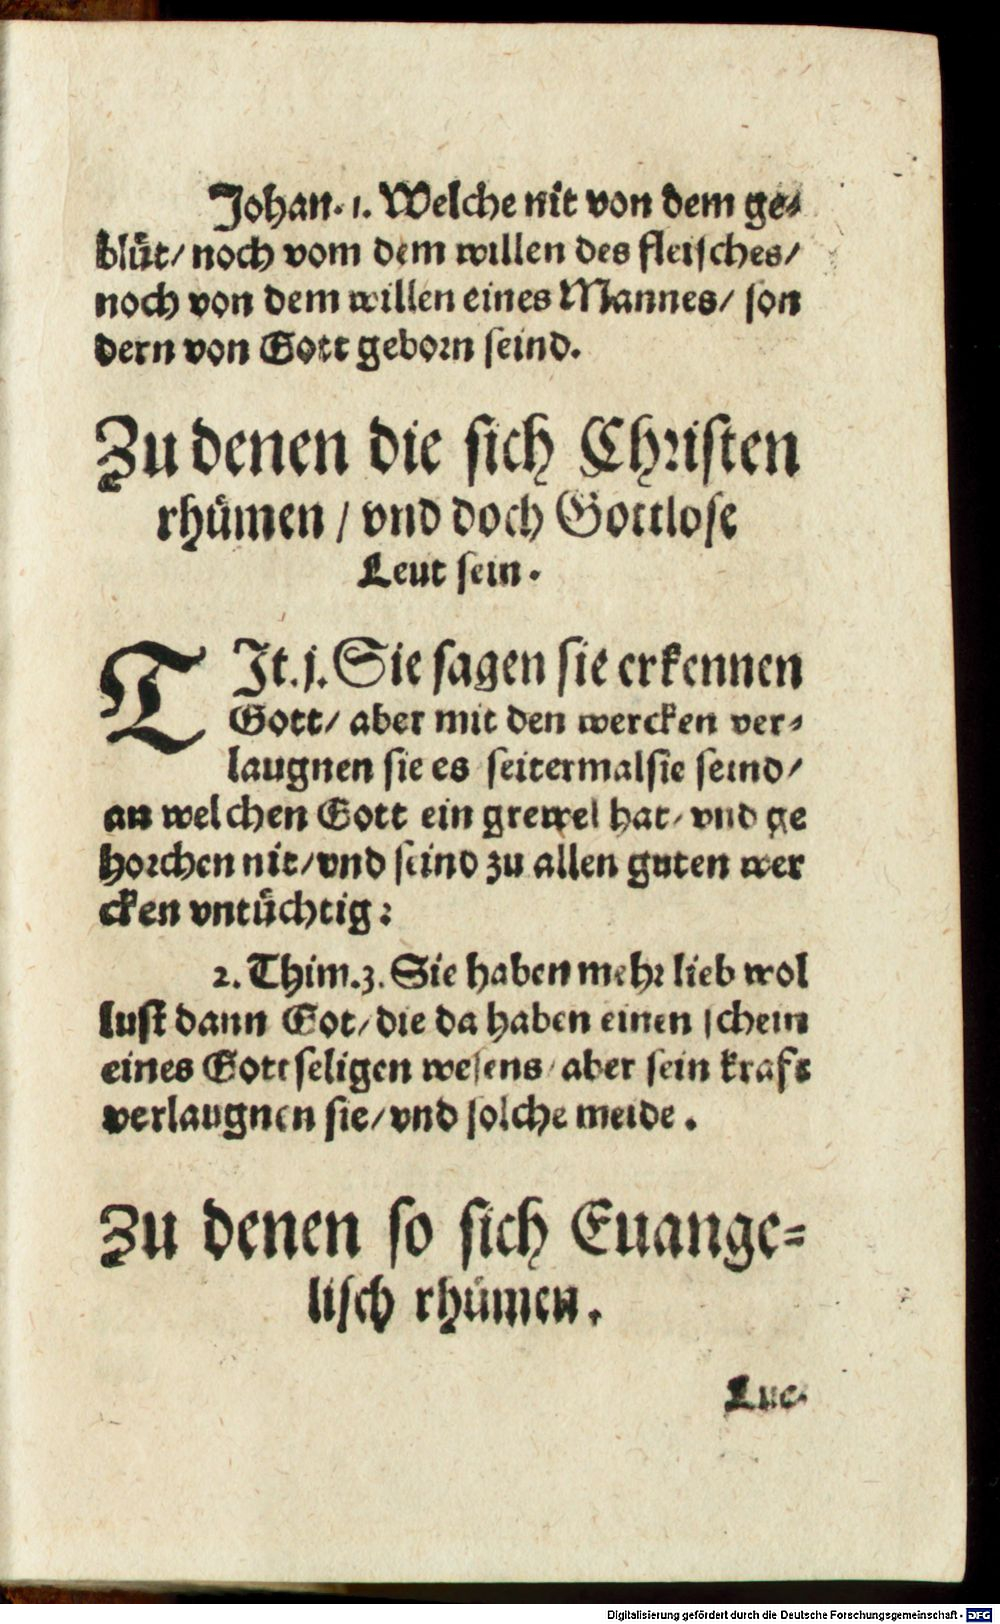 Johan. 1. Welche nit von dem ge-
blüt/ noch vom dem willen des fleisches/
noch von dem willen eines Mannes/ son
dern von Gott geborn seind.
Zu denen die sich Christen
rhümen / vnd doch Gottlose
Leut sein.
TIt. j. Sie sagen sie erkennen
Gott/ aber mit den wercken ver-
laugnen sie es seitermalsie seind/
an welchen Gott ein grewel hat/ vnd ge
horchen nit/ vnd seind zu allen guten wer
cken vntüchtig:
2. Thim. 3. Sie haben mehr lieb wol
lust dann Got/ die da haben einen schein
eines Gottseligen wesens/ aber sein kraft
verlaugnen sie/ vnd solche meide.
Zu denen so sich Euange-
lisch rhümen.
Luc.
Digitalisierung gefördert durch die Deutsche Forschungsgemeinschaft - DFG